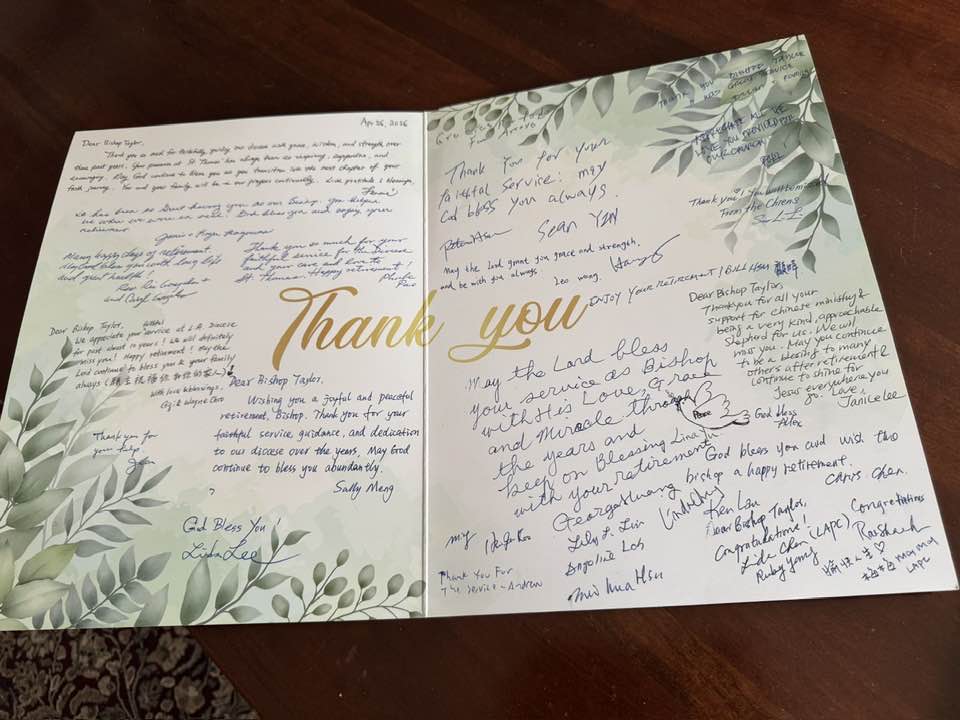 Apr 26, 2026
Dear Bishop Taylor,
Thank you so much for faithfully guiding our diocese with grace, wisdom, and strength over
these past years. Your presence at St Thomas' has always been so inspiring, supportive, and
encouraging. May God continue to bless you as you transition into the next chapter of your
faith journey. You and your family will be in our prayers continually. With gratitude & blessings,
We has been so blest having you as our Bishop. You helped
us when we were in need! God bless you and enjoy your
retirement.
Many happy days of retirement.
May God bless you with long life
and good health!
and Caryl
Thank you so much for your
faithful service for the Diocese
and your care and love to
St. Thomas. Happy retirement!
Dear Bishop Taylor,
We appreciate your faithful service at L.A. Diocese
for past about 10 years! We will definitely
miss you! Happy retirement! May the
Lord continue to bless you & your family
always (願主祝福你和你的家人)!
With love & blessings,
Thank you for
your help.
Thank you
Dear Bishop Taylor,
Wishing you a joyful and peaceful
retirement, Bishop. Thank you for your
faithful service, guidance, and dedication
to our diocese over the years. May God
continue to bless you abundantly.
Sally Meng
God Bless You!
Linda Lee
THANK YOU BISHOP TAYLOR
Thank You for your
faithful service! may
God bless you always!
Sean Yan
Peter Hsu
May the Lord grant you grace and strength,
and be with you always.
Leo Wong.
APPRECIATE ALL THE
LOVE YOU PROVIDED FOR
OUR CHURCH!
Thank you! You will be missed
From the Chiens
ENJOY YOUR RETIREMENT! BILL HSU
Dear Bishop Taylor,
Thank you for all your
support for Chinese ministry &
being a very kind, approachable
Shepherd for us. We will
miss you. May you continue
to be a blessing to many
others after retirement &
continue to shine for
Jesus everywhere you
go. Love,
Janice Lee
May the Lord bless
your service as Bishop
with His Love, Grace
and Miracle through
the years and
keep on Blessing
with your retirement
George Huang
Peace
God bless
Alex
God bless you and wish the
bishop a happy retirement.
Chris Chen.
Lily L. Lin
Ken Lau
Angeline Loh
Mei Hua Hsu
Thank You For
The Service - Andrew
Dear Bishop Taylor,
Congratulations!
Lida Chen (LAPC)
Ruby Yang
Congratulations
May May
LAPC